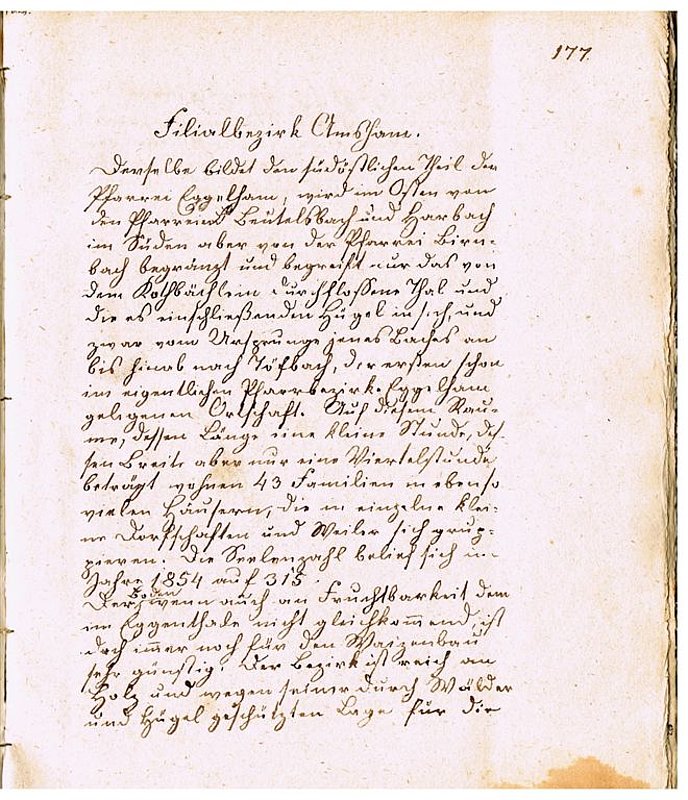 177.
Filialbezirk Amsham.
Derselbe bildet den südöstlichen Theil der
Pfarrei Eggelham, wird im Osten von
den Pfarreien Beutelsbach und Harbach
im Süden aber von der Pfarrei Birn-
bach begränzt und begreift nur das von
dem Kothbächlein durchflossene Thal und
die es einschließenden Hügel in sich, und
zwar vom Ursprunge jenes Baches an
bis hinab nach Töfbach, der ersten schon
im eigentlichen Pfarrbezirke Eggelham
gelegenen Ortschaft. Auf diesem Rau-
me, dessen Länge eine kleine Stunde, des-
sen Breite aber nur eine Viertelstunde
beträgt wohnen 43 Familien in ebenso
vielen Häusern, die in einzelne klei-
ne Dorfschaften und Weiler sich grup-
pieren. Die Seelenzahl belief sich im
Jahre 1854 auf 315.
Der Boden wenn auch an Fruchtbarkeit dem
im Eggenthale nicht gleichkommend, ist
doch immer noch für den Waizenbau
sehr günstig. Der Bezirk ist reich an
Holz und wegen seiner durch Wälder
und Hügel geschützten Lage für die